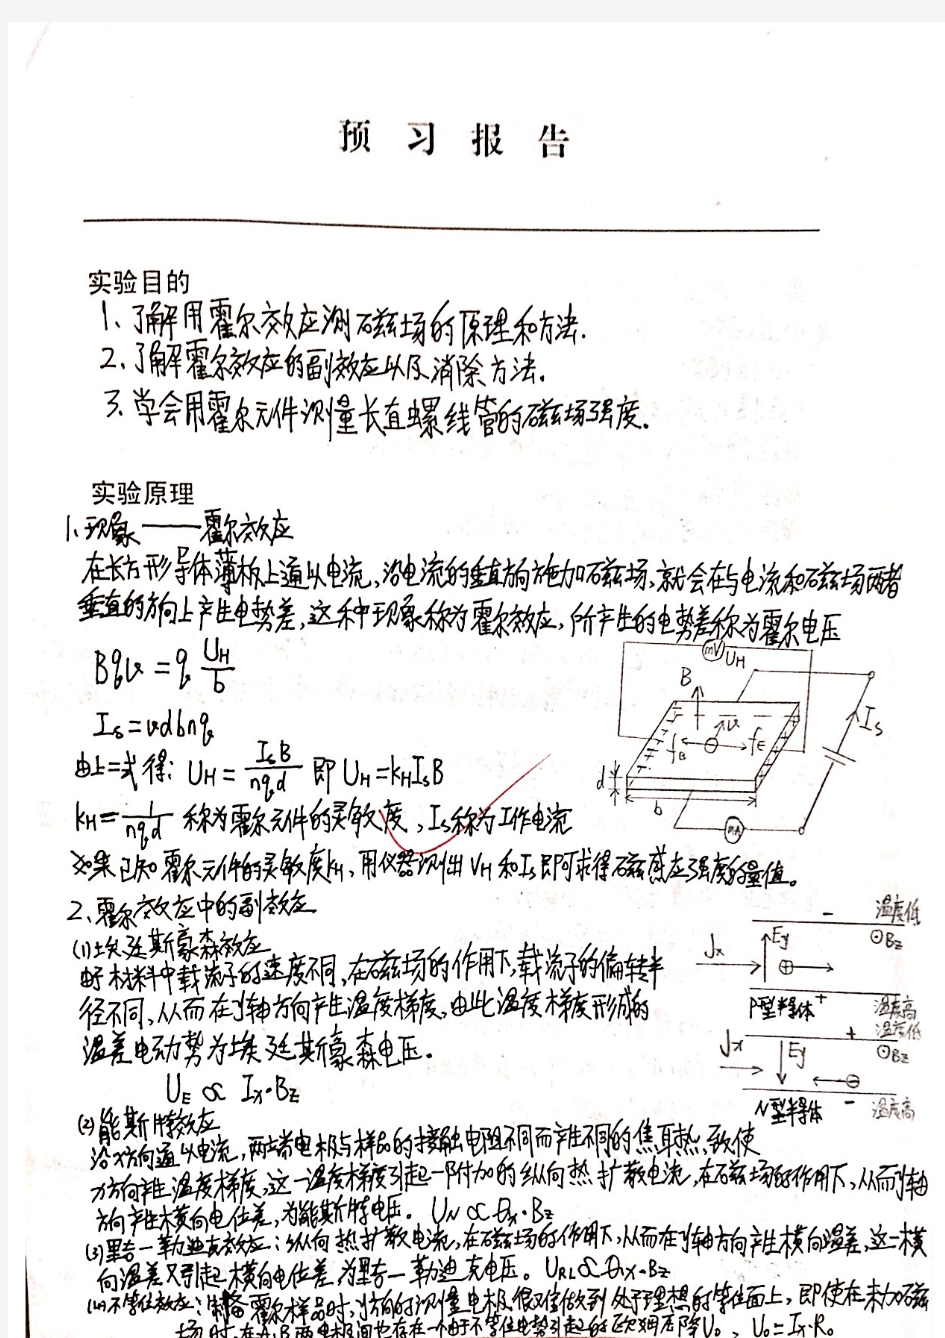 预习报告
实验目的
1、了解用霍尔效应测磁场的原理和方法.
2、了解霍尔效应的副效应以及消除方法。
3、学会用霍尔元件测量长直螺线管的磁场强度。
实验原理
1、现象——霍尔效应
在长方形导体薄板上通以电流,沿电流的垂直方向施加磁场,就会在与电流和磁场两者
垂直的方向上产生电势差,这种现象称为霍尔效应,所产生的电势差称为霍尔电压
Bqv = q UH/b
Is = vdbnq
由上二式得: UH = IsB/nqd 即 UH=kHIsB
kH = 1/nqd 称为霍尔元件的灵敏度, Is称为工作电流
如果已知霍尔元件的灵敏度kH,用仪器测出VH和Is即可求得磁感应强度的量值。
mV UH
B
v
fB
fE
Is
d
b
mA
2、霍尔效应中的副效应
(1)埃廷斯豪森效应
由于材料中载流子的速度不同,在磁场的作用下,载流子的偏转半
径不同,从而在y轴方向产生温度梯度,由此温度梯度形成的
温差电动势为埃廷斯豪森电压。
UE ∝ Ix·Bz
- 温度低
Jx Ey ⊙Bz
⊕
P型半导体 + 温度高
+ 温度低
Jx Ey ⊙Bz
⊖
N型半导体 - 温度高
(2)能斯特效应
沿x方向通以电流,两端电极与样品的接触电阻不同而产生不同的焦耳热,致使
x方向产生温度梯度,这一温度梯度引起一附加的纵向热扩散电流,在磁场的作用下,从而y轴
方向产生横向电位差,为能斯特电压。 UN ∝ θx·Bz
(3)里吉-勒迪克效应:纵向热扩散电流,在磁场的作用下,从而在y轴方向产生横向温差,这一横
向温差又引起横向电位差,为里吉-勒迪克电压。 URL ∝ θx·Bz
(4)不等位效应:制备霍尔样品时,y方向的测量电极很难做到处于理想的等位面上,即使在未加磁
场时,在A、B两电极间也存在一个由于不等位电势引起的欧姆压降U0, U0=Ix·R0